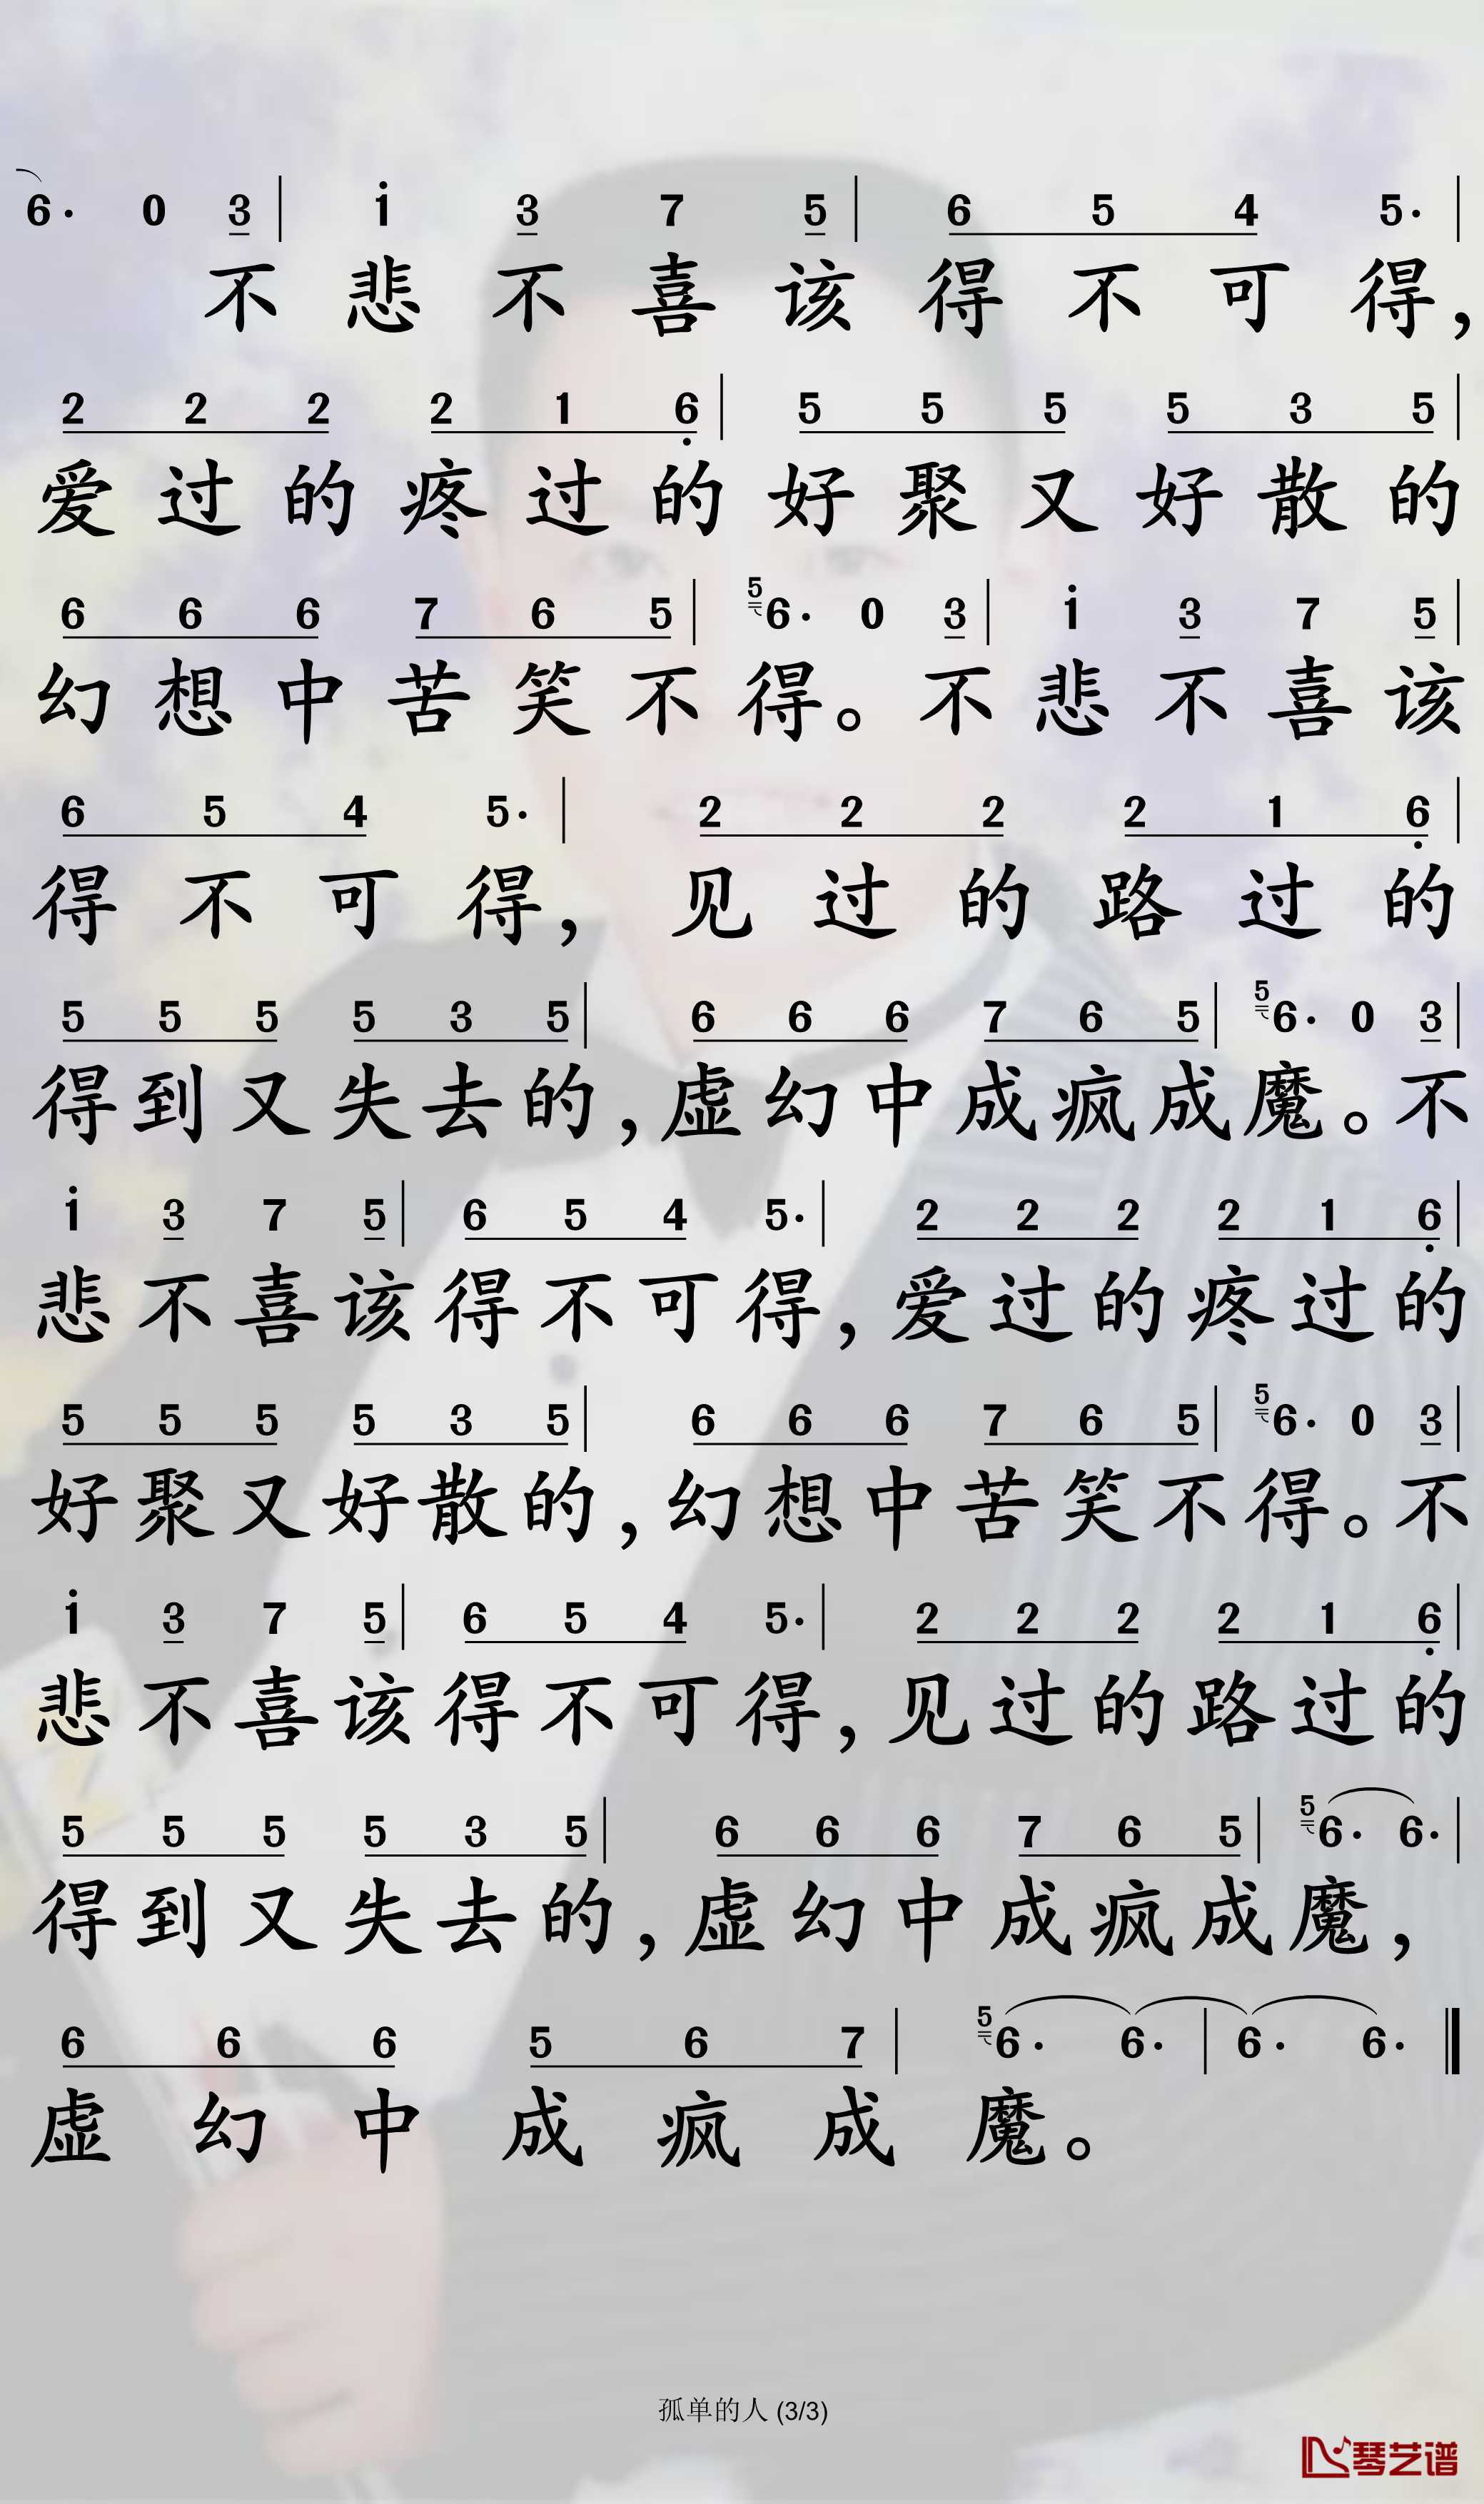 6· 0 3 | i 3 7 5 | 6 5 4 5· |
不 悲 不 喜 该 得 不 可 得，
2 2 2 2 1 6 | 5 5 5 5 3 5 |
爱 过 的 疼 过 的 好 聚 又 好 散 的
6 6 6 7 6 5 | 5 6· 0 3 | i 3 7 5 |
幻 想 中 苦 笑 不 得。不 悲 不 喜 该
6 5 4 5· | 2 2 2 2 1 6 |
得 不 可 得， 见 过 的 路 过 的
5 5 5 5 3 5 | 6 6 6 7 6 5 | 5 6· 0 3 |
得 到 又 失 去 的，虚 幻 中 成 疯 成 魔。不
i 3 7 5 | 6 5 4 5· | 2 2 2 2 1 6 |
悲 不 喜 该 得 不 可 得，爱 过 的 疼 过 的
5 5 5 5 3 5 | 6 6 6 7 6 5 | 5 6· 0 3 |
好 聚 又 好 散 的，幻 想 中 苦 笑 不 得。不
i 3 7 5 | 6 5 4 5· | 2 2 2 2 1 6 |
悲 不 喜 该 得 不 可 得，见 过 的 路 过 的
5 5 5 5 3 5 | 6 6 6 7 6 5 | 5 6· 6· |
得 到 又 失 去 的，虚 幻 中 成 疯 成 魔，
6 6 6 5 6 7 | 5 6· 6· | 6· 6· ‖
虚 幻 中 成 疯 成 魔。
孤单的人 (3/3)
琴艺谱